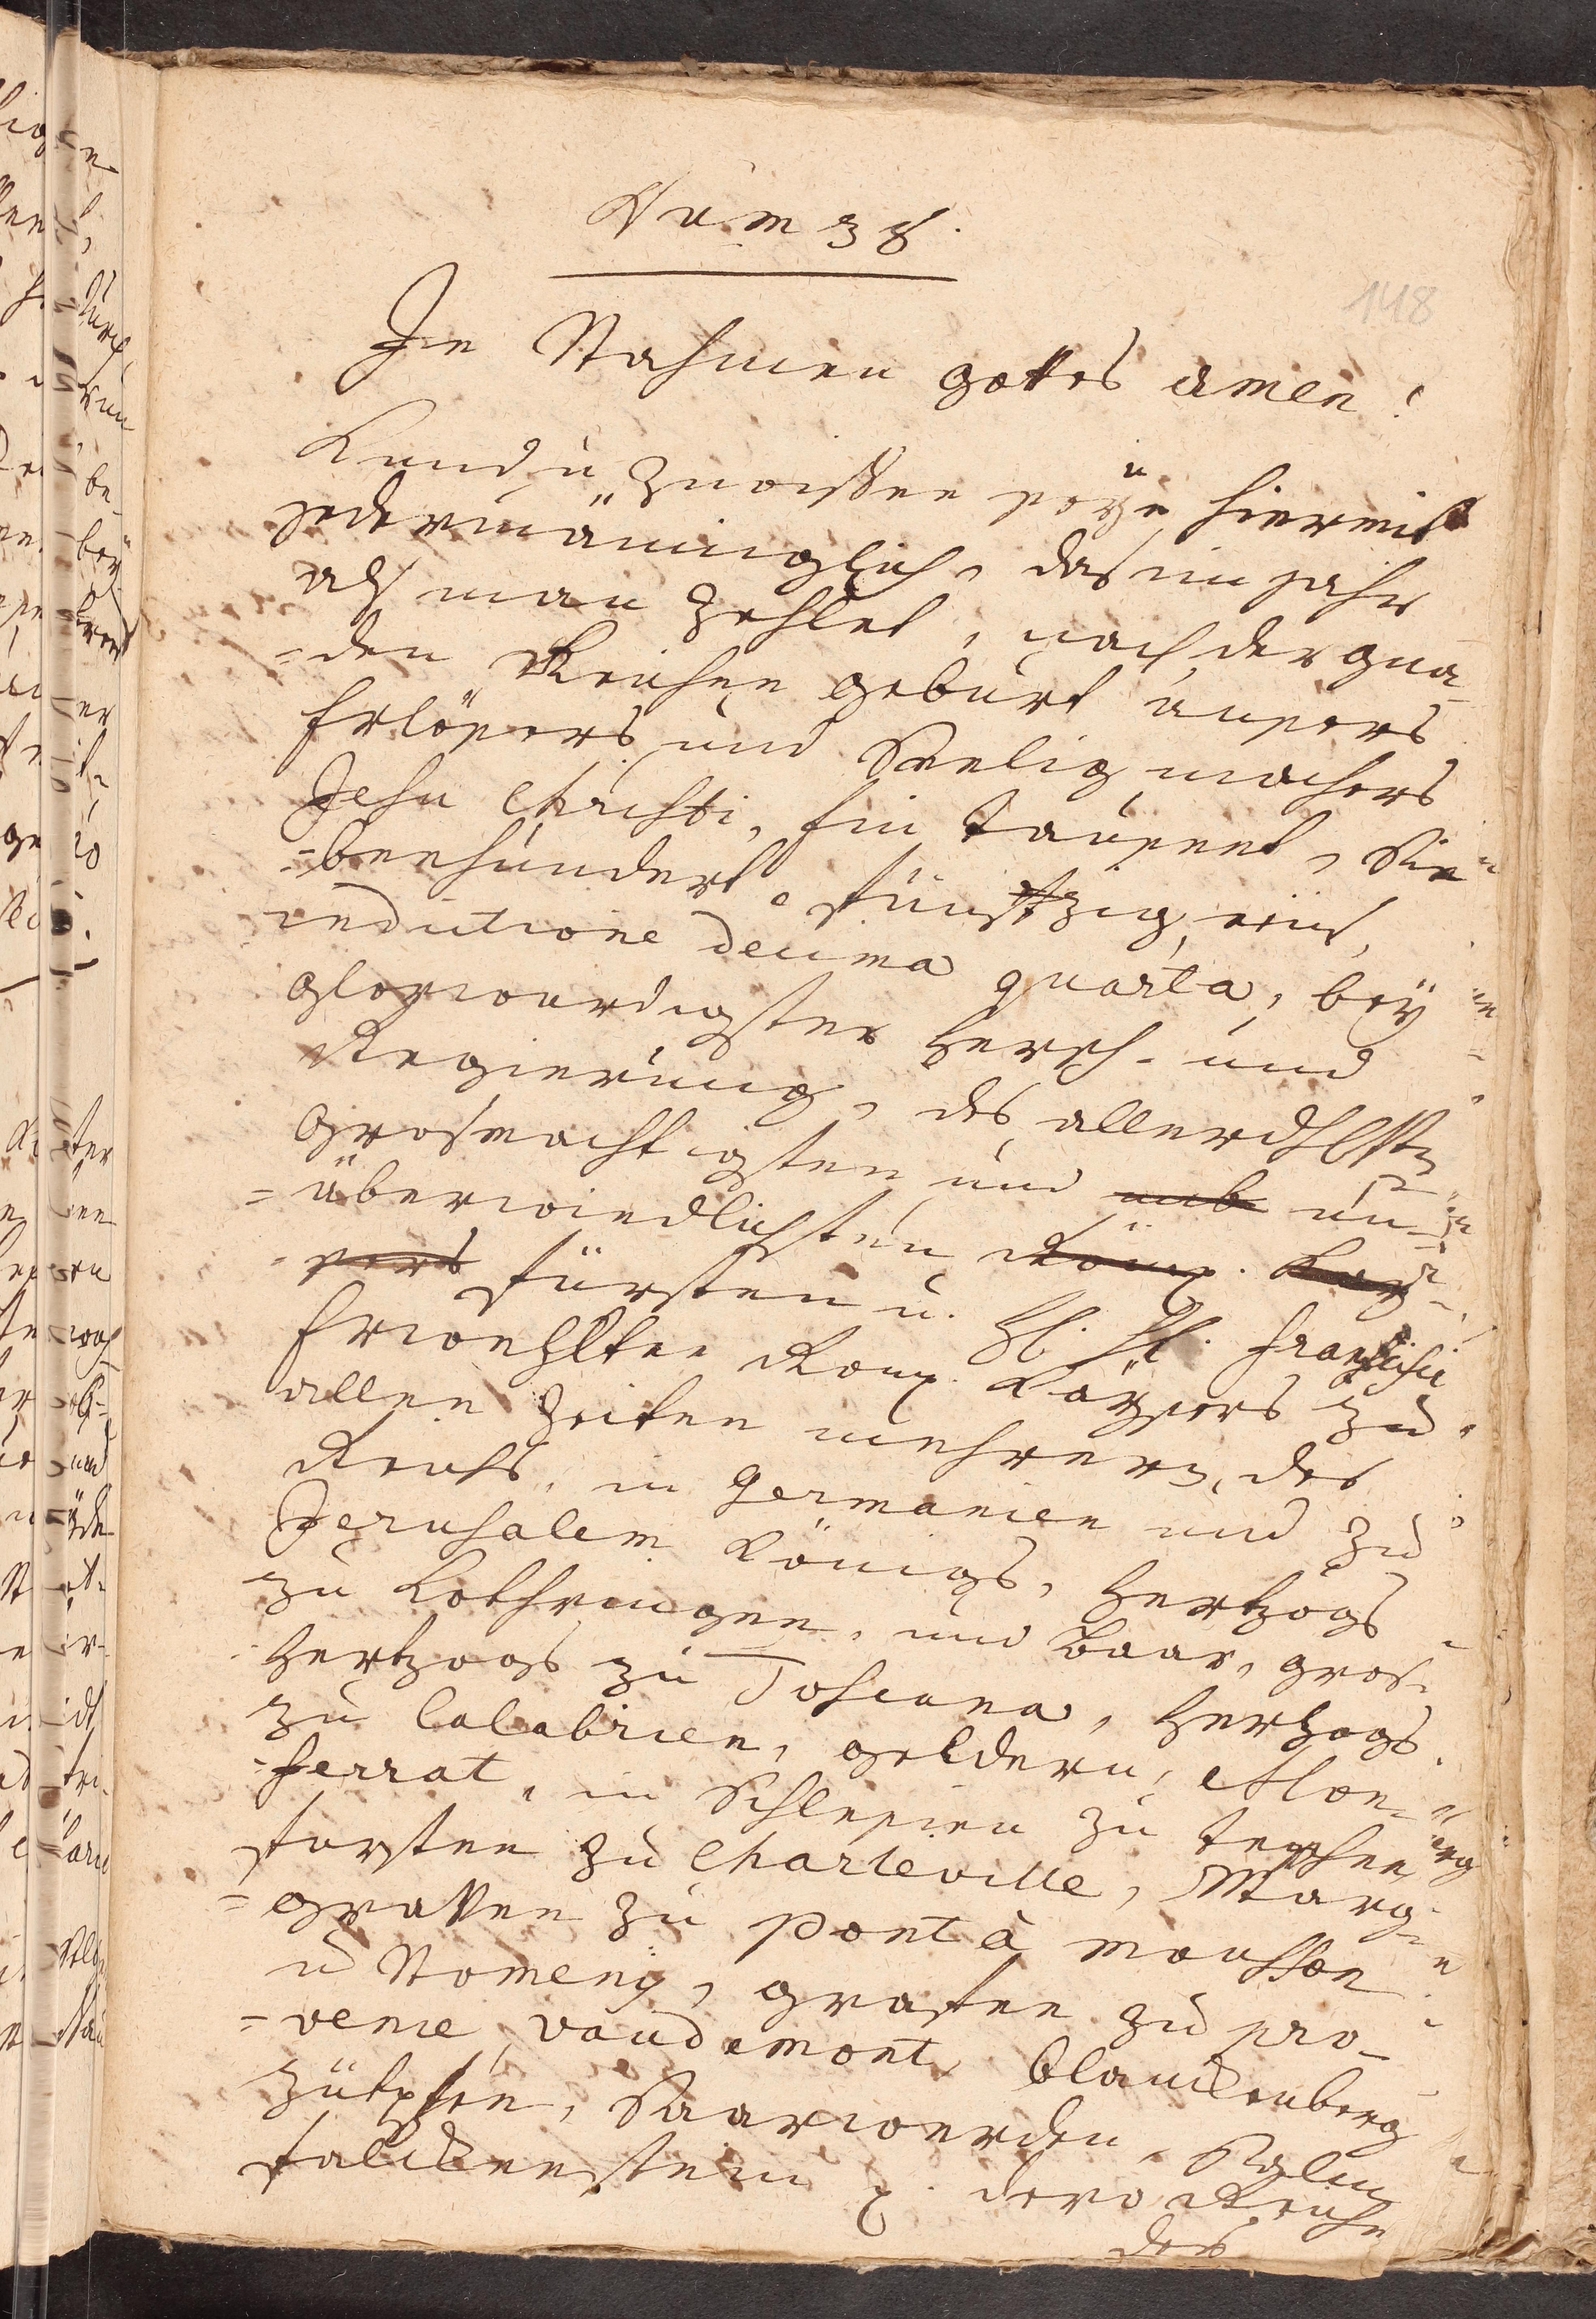 Num 38.
148
In Nahmen gottes amen!
Kund u. Zuwißen seye hiermit
Jedermänniglich, das im jahr
als man Zehlet, nach der gna-
=den Reichen geburt unsers
Erlösers und Seeligmachers
Jesu Christi, Ein tausent, Sie-
=benhundert, fünftzig, eins,
indictione decima quarta, beÿ
glorwürdigster Herrsch- und
Regierung, des allerdhlsten
Grosmachtigsten und unb un-
=überwindlichsten Röm. Kay-
sers fürsten u. H. H. Francisci
Erwehlten Röm. Kaÿsers zu
allen Zeiten mehrern, des
Reichs, in Germanien und zu
Jerusalem Königs, Hertzogs
zu Lothringen, und Baar, gros-
Hertzogs zu Toscana, Hertzogs
zu Calabrien, geldern, Mon-
=ferrat, in Schlesien zu teschen
fursten zu Charleville, Marg-
=graffen zu Pont à mousson
u Nomeny, grafen zu pro-
=vence, vaudemont, blanckenberg
zütphen, Saarwerden, Salm
falckenstein p. dero Reiche
des